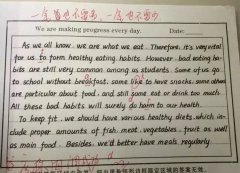 一个也不要多,一个也不要少
We are making progress every day. Date:
As we all know, we are what we eat. Therefore, it's very vital
for us to form healthy eating habits. However, bad eating ha-
bits are still very common among us students. Some of us go
to school without breakfast, some like to have snacks, some others
are particular about food, and still some eat or drink too much.
All these bad habits will surely do harm to our health.
To keep fit, we should have various healthy diets, which in-
clude proper amounts of fish, meat, vegetables, fruit as well
as main food. Besides, we'd better have meals regularly